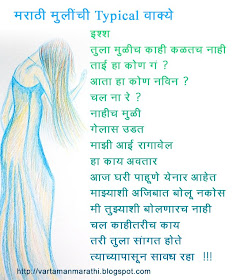 मराठी मुलींची Typical वाक्ये
इश्श
तुला मुळीच काही कळतच नाही
ताई हा कोण गं ?
आता हा कोण नविन ?
चल ना रे ?
नाहीच मुळी
गेलास उडत
माझी आई रागावेल
हा काय अवतार
आज घरी पाहूणे येनार आहेत
माझ्याशी अजिबात बोलू नकोस
मी तुझ्याशी बोलणारच नाही
चल काहीतरीच काय
तरी तुला सांगत होते
त्याच्यापासून सावध रहा !!!
http://vartamanmarathi.blogspot.com